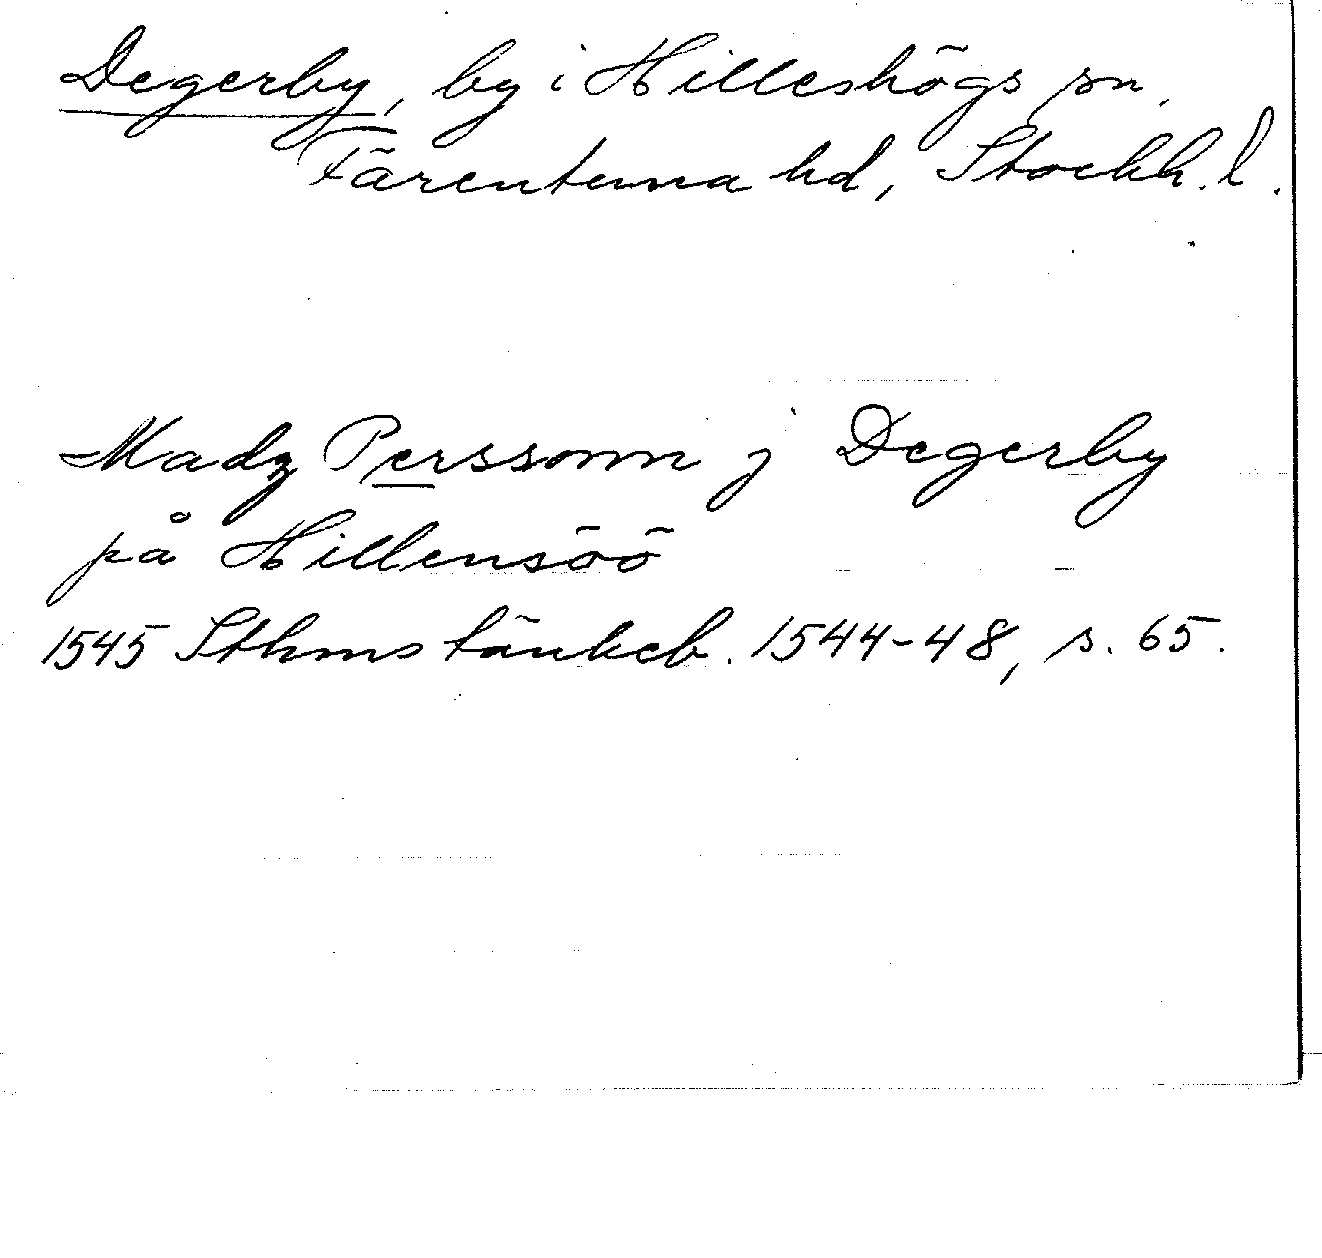 Degerby, by i Hilleshögs sn,
Färentuna hd, Stockh. l.
Madz Perssonn j Degerby
på Hillensöö
1545 Sthms tänkeb. 1544-48, s. 65.